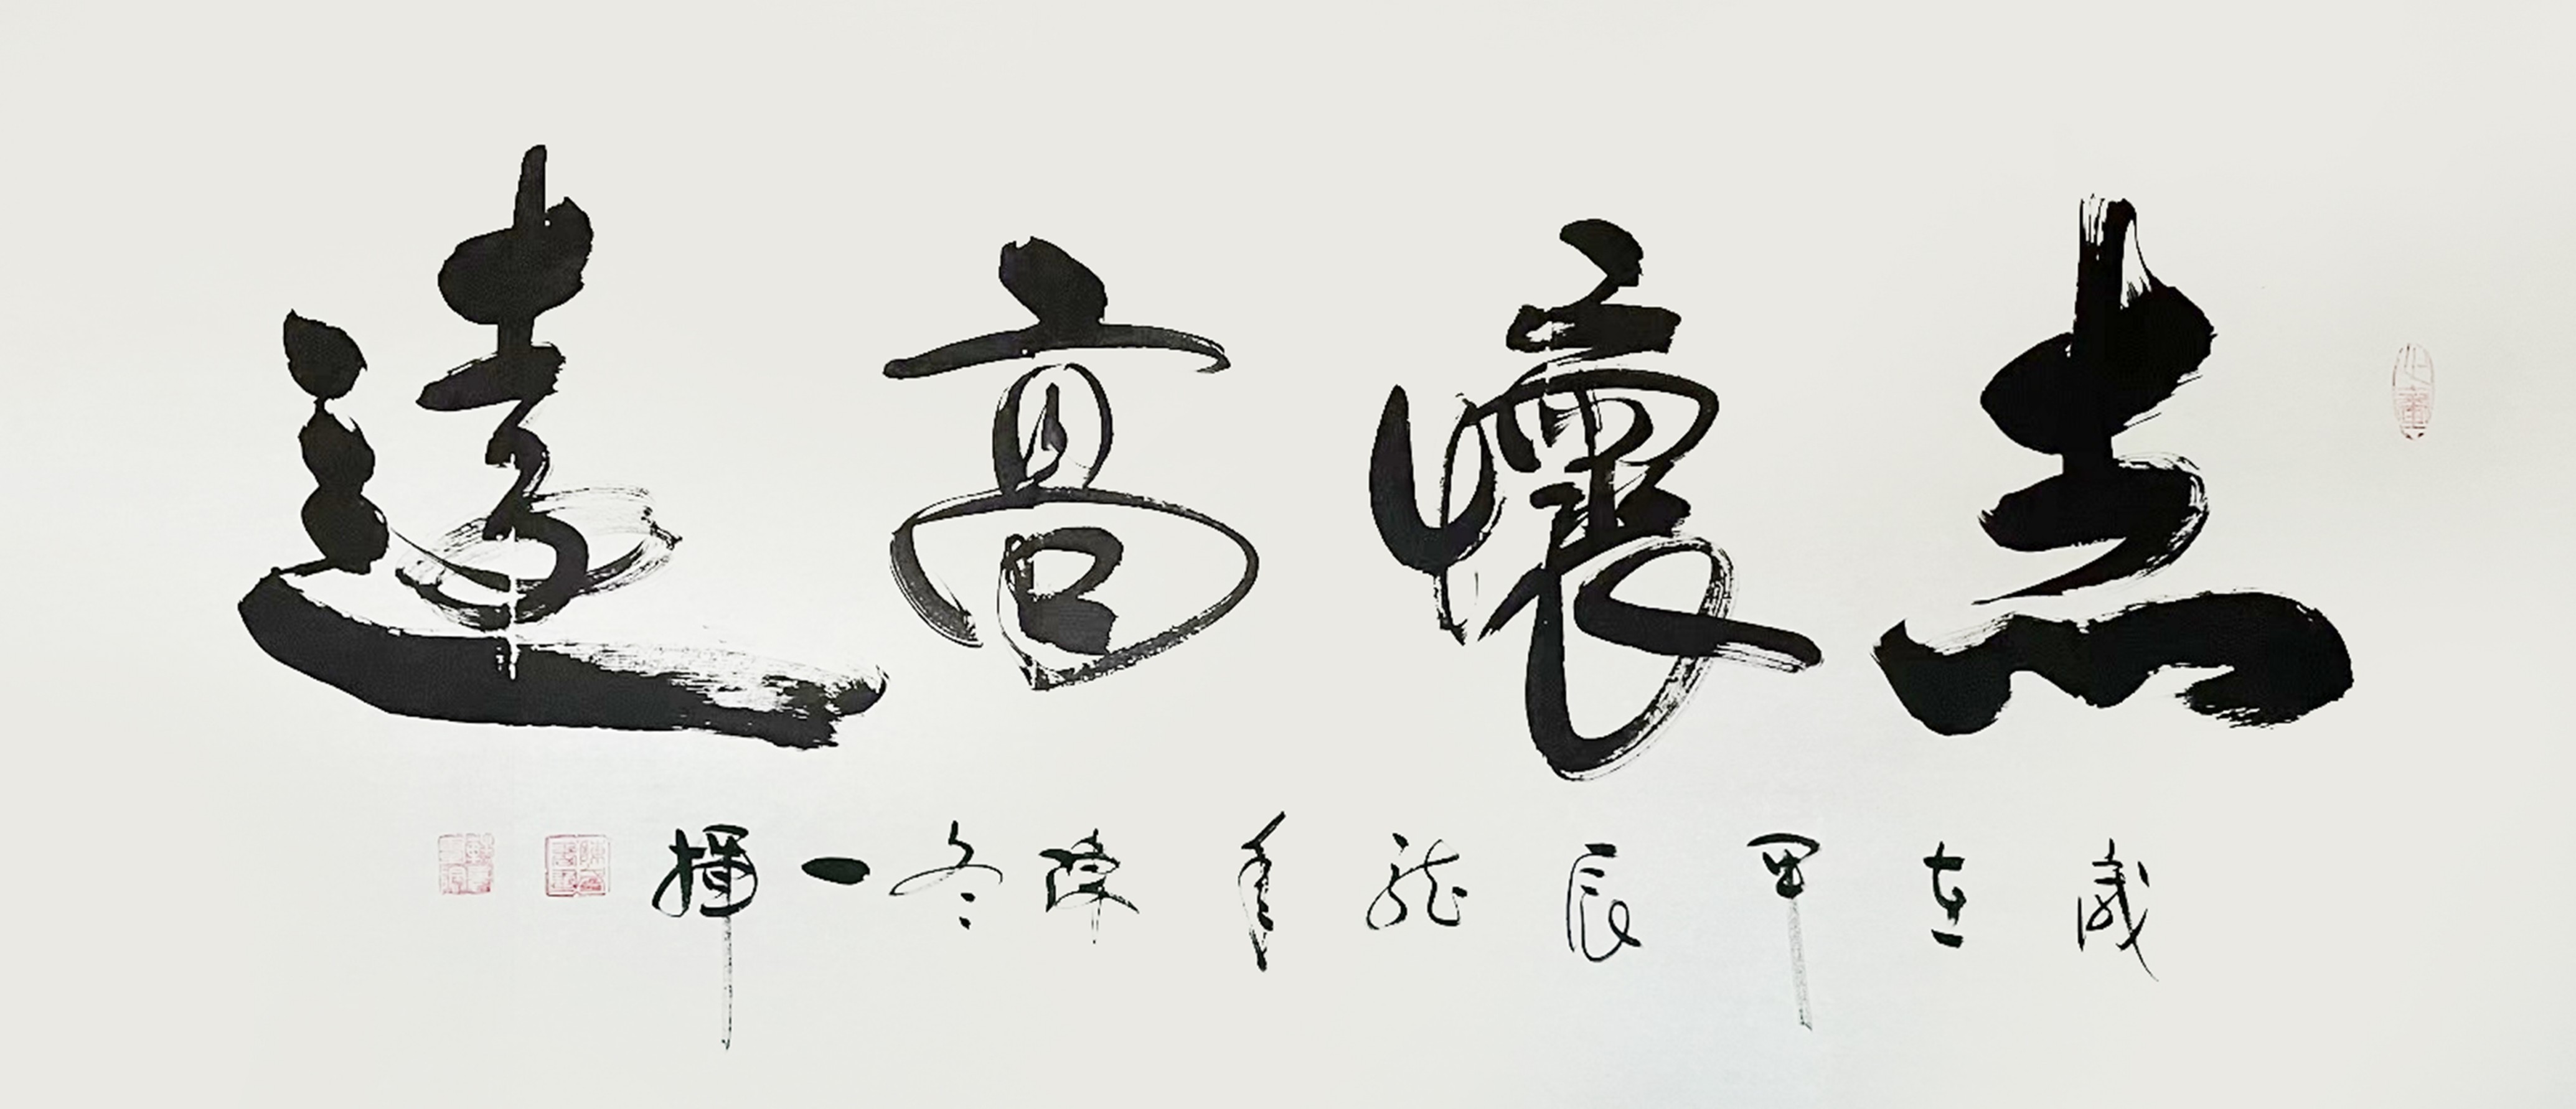 志懷高遠
歲在甲辰龍年陳冬一揮